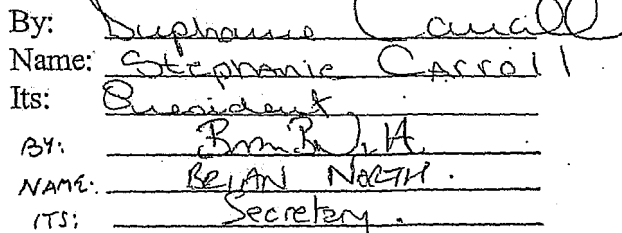 By: Stephanie Carroll
Name: Stephanie Carroll
Its: President
BY:
NAME: BRIAN NORTH.
ITS: Secretary.